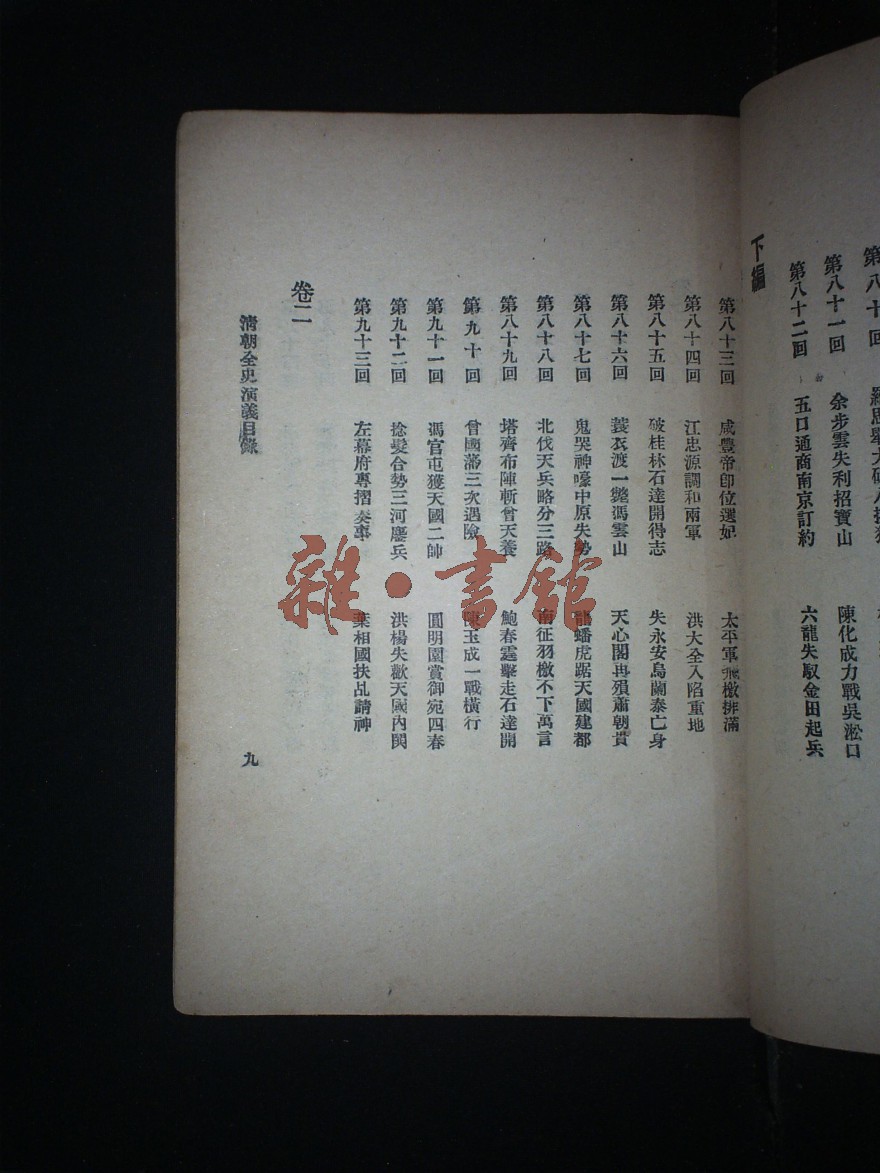 第八十回
第八十一回 余步雲失利招寶山 陳化成力戰吳淞口
第八十二回 五口通商南京訂約 六龍失馭金田起兵
下編
第八十三回 咸豐帝卽位選妃 太平軍飛檄排滿
第八十四回 江忠源調和兩軍 洪大全入陷重地
第八十五回 破桂林石達開得志 失永安烏蘭泰亡身
第八十六回 蓑衣渡一斃馮雲山 天心閣再殞蕭朝貴
第八十七回 鬼哭神嚎中原失勢 龍蟠虎踞天國建都
第八十八回 北伐天兵略分三路 南征羽檄不下萬言
第八十九回 塔齊布陣斬曾天養 鮑春霆擊走石達開
第九十回 曾國藩三次遇險 陳玉成一戰橫行
第九十一回 馮官屯獲天國二帥 圓明園賞御宛四春
第九十二回 捻髮合勢三河鏖兵 洪楊失歡天國內鬨
第九十三回 左幕府專摺奏事 葉相國扶乩請神
卷二
淸朝全史演義目錄
九
雜·書館